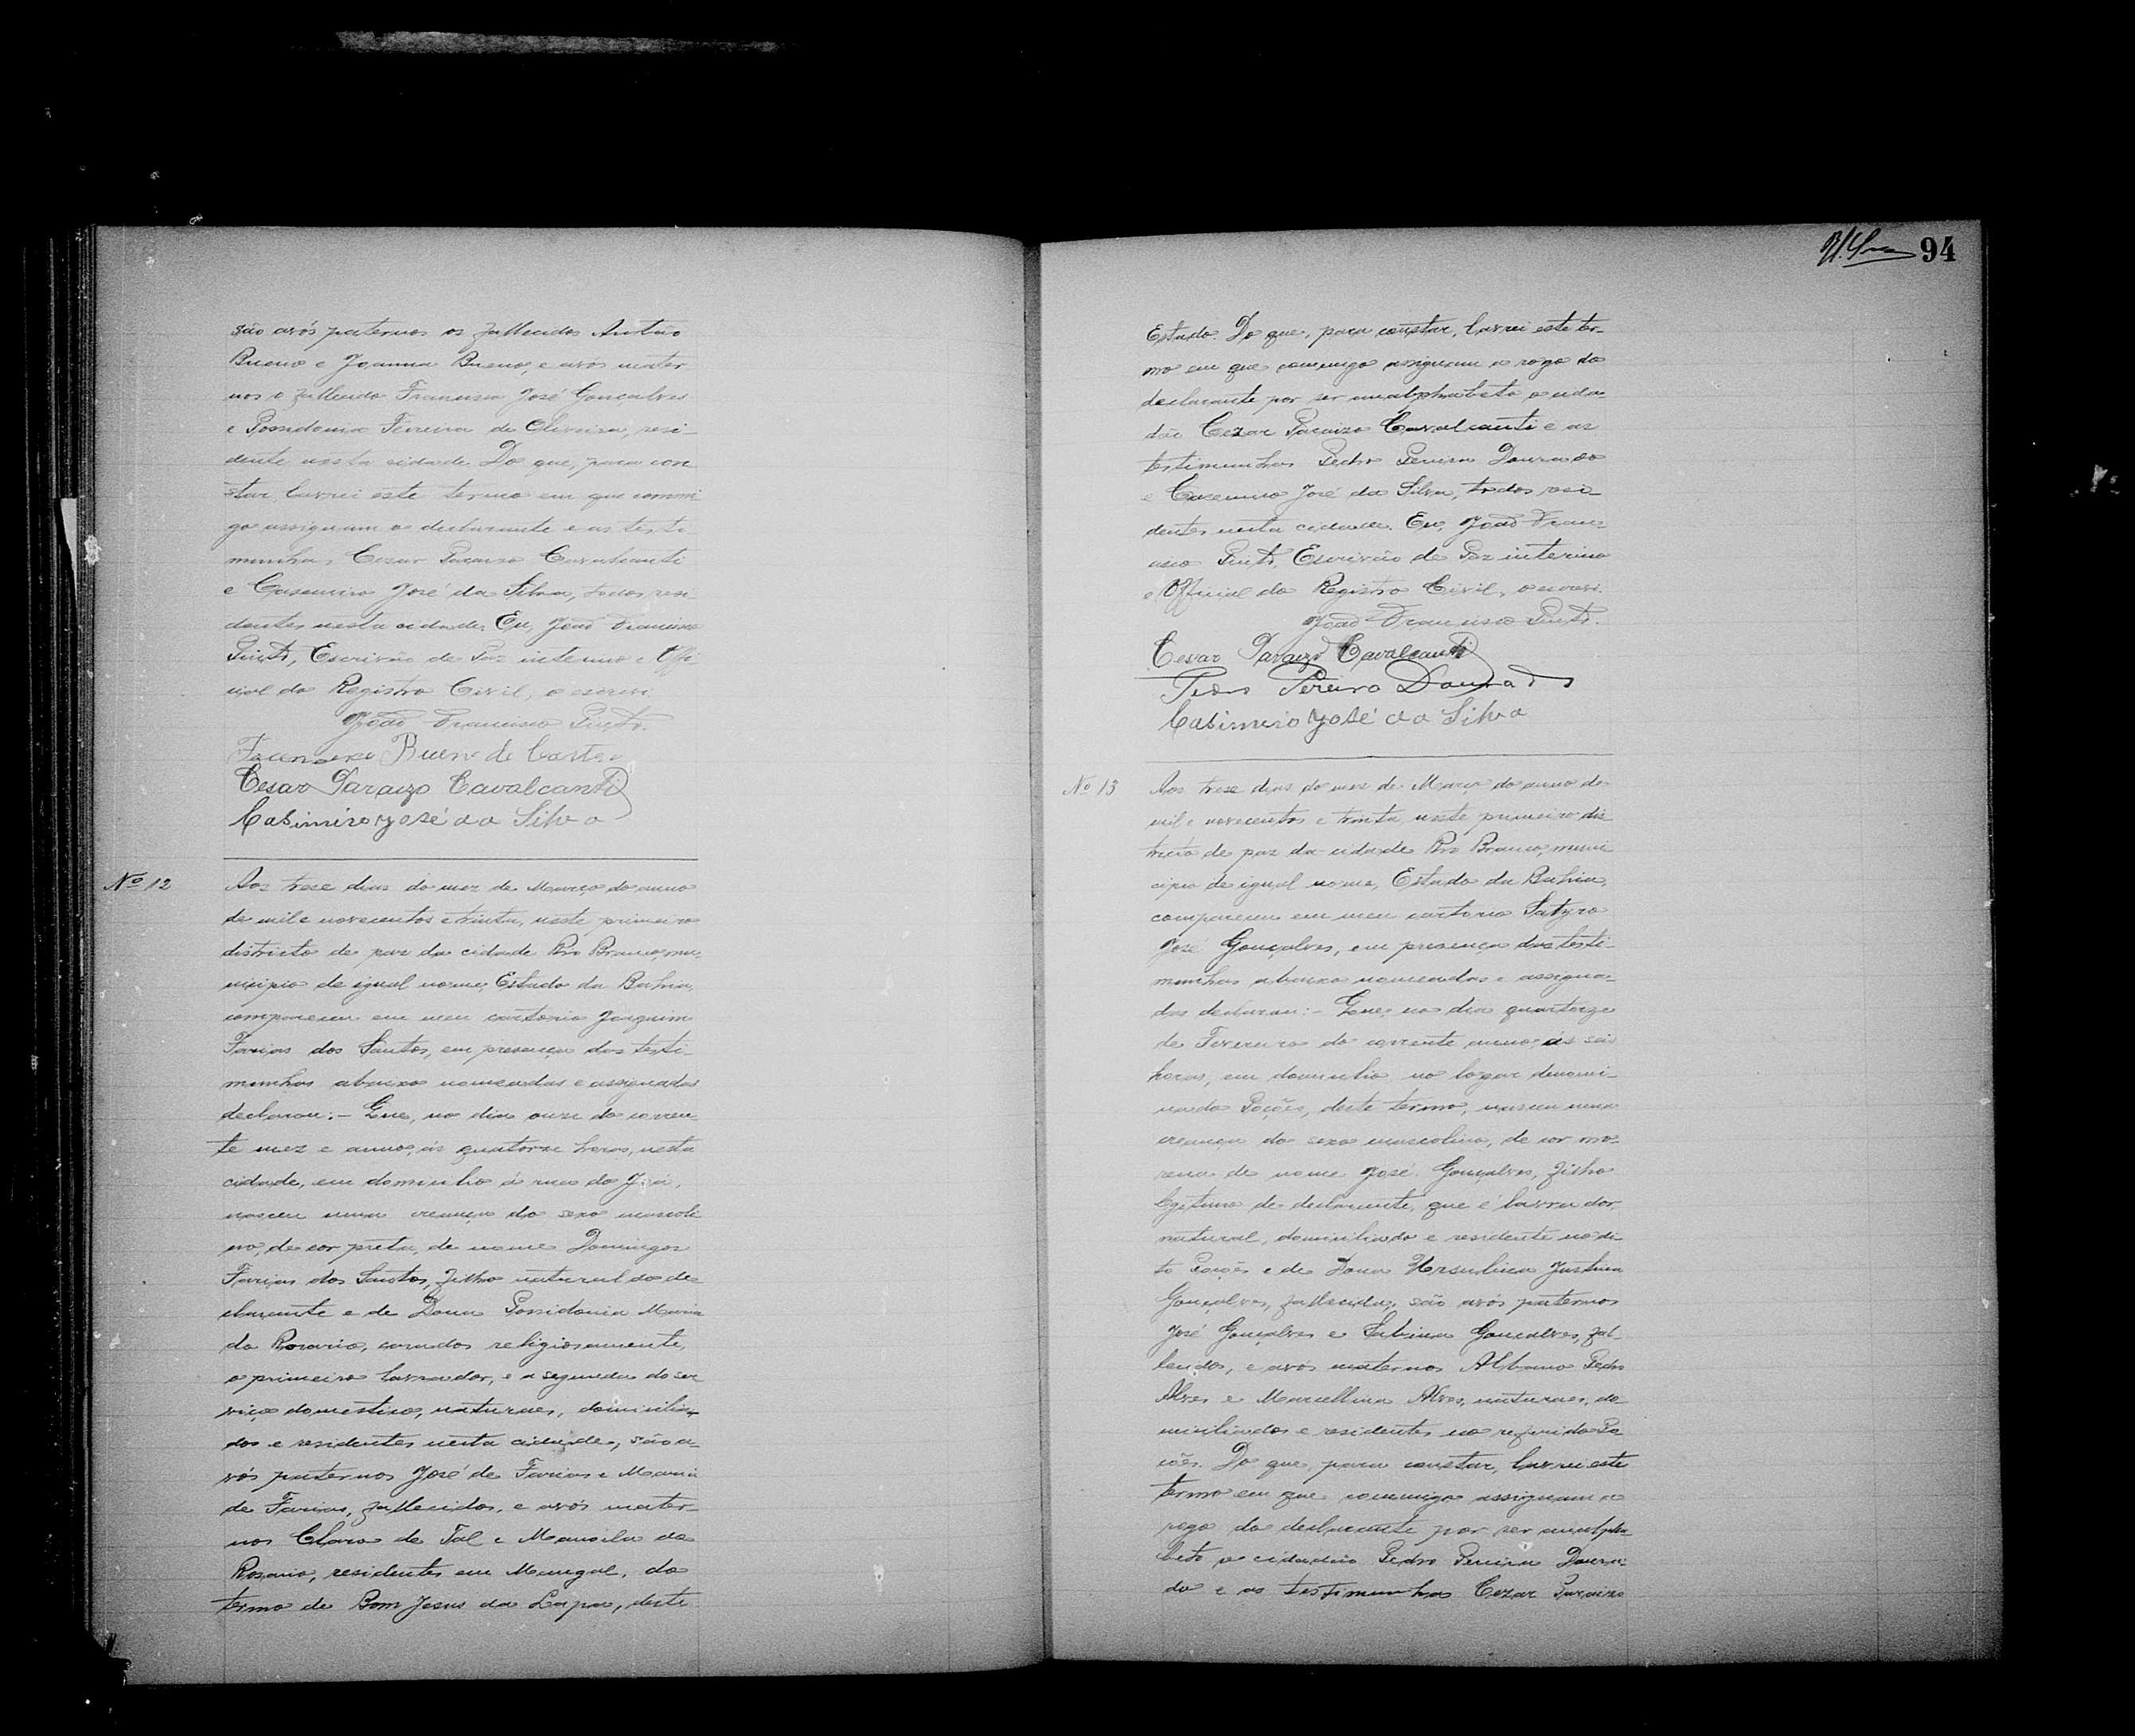 são avós paternos os fallecidos Antão
Bueno e Joanna Bueno, e avós mater
nos o fallecido Francisco José Gonçalves
e Possidonia Ferreira de Oliveira, resi-
dente nesta cidade. Do que, para cons
tar, lavrei este termo em que commi
go assignam o declarante e as teste
munhas, Cezar Paraizo Cavalcanti
e Casemiro José da Silva, todos resi
dentes nesta cidade. Eu, João Francisco
Pinto, Escrivão de Paz interino e Offi
cial do Registro Civil, o escrevi
João Francisco Pinto.
Francisco Bueno de Castro
Cesar Paraizo Cavalcanti
Casimiro José da Silva
Nº 12
Aos trese dias do mez de Março do anno
de mil e novecentos e trinta, neste primeiro
districto de paz da cidade Rio Branco, mu-
nicipio de igual nome, Estado da Bahia,
compareceu em meu cartorio Joaquim
Farias dos Santos, em presença das teste-
munhas abaixo nomeadas e assignadas
declarou: - Que, no dia onze do corren-
te mez e anno, ás quatorze horas, nesta
cidade, em domicilio á rua do
nasceu uma creança do sexo masculi
no, de cor preta, de nome Domingos
Farias dos Santos, filho natural do de
clarante e de Dona Possidonia Maria
do Rosario, casados religiosamente,
o primeiro lavrador, e a segunda do ser
viço domestico, naturaes, domicilia-
dos e residentes nesta cidade, são a-
vós paternos José de Farias e Maria
de Farias, fallecidos, e avós mater-
nos Claro de Tal e Manoela do
Rosario, residentes em Mangal, do
termo de Bom Jesus da Lapa, deste
94
Estado. Do que, para constar, lavrei este ter-
mo em que commigo assignam a rogo do
declarante por ser analphabeto o cida-
dão Cezar Paraizo Cavalcanti e as
testimunhas Pedro Pereira Dourado
e Casemiro José da Silva, todos resi-
dentes nesta cidade. Eu, João Fran-
cisco Pinto, Escrivão de Paz interino
e Official do Registro Civil, o escrevi.
João Francisco Pinto.
Cesar Paraizo Cavalcanti
Pedro Pereira Dourado
Casimiro José da Silva
Nº 13
Aos trese dias do mez de Março do anno de
mil e novecentos e trinta, neste primeiro dis
tricto de paz da cidade Rio Branco, muni
cipio de igual nome, Estado da Bahia,
compareceu em meu cartorio Satyro
José Gonçalves, em presença das teste-
munhas abaixo nomeadas e assigna-
das declarou: - Que, no dia quatorze
de Fevereiro do corrente anno, ás seis
horas, em domicilio no logar denomi-
nado Poções, deste termo, nasceu uma
creança do sexo masculino, de cor mo-
rena de nome José Gonçalves, filho
legitimo do declarante, que é lavrador,
natural, domiciliado e residente no di-
to Poções e de Dona Ursulina Justina
Gonçalves, fallecida, são avós paternos
José Gonçalves e Sabina Gonçalves, fal-
lecidos, e avós maternos Albano Pedro
Alves e Marcellina Alves, naturaes, do-
miciliados e residentes no referido Po-
ções. Do que, para constar, lavrei este
termo em que commigo assignam a
rogo do declarante por ser analpha-
beto o cidadão Pedro Pereira Doura-
do e as testimunhas Cezar Paraizo